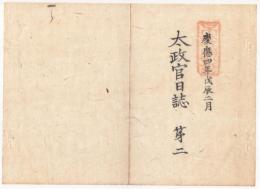 慶應四年戊辰二月
太政官日誌 第二